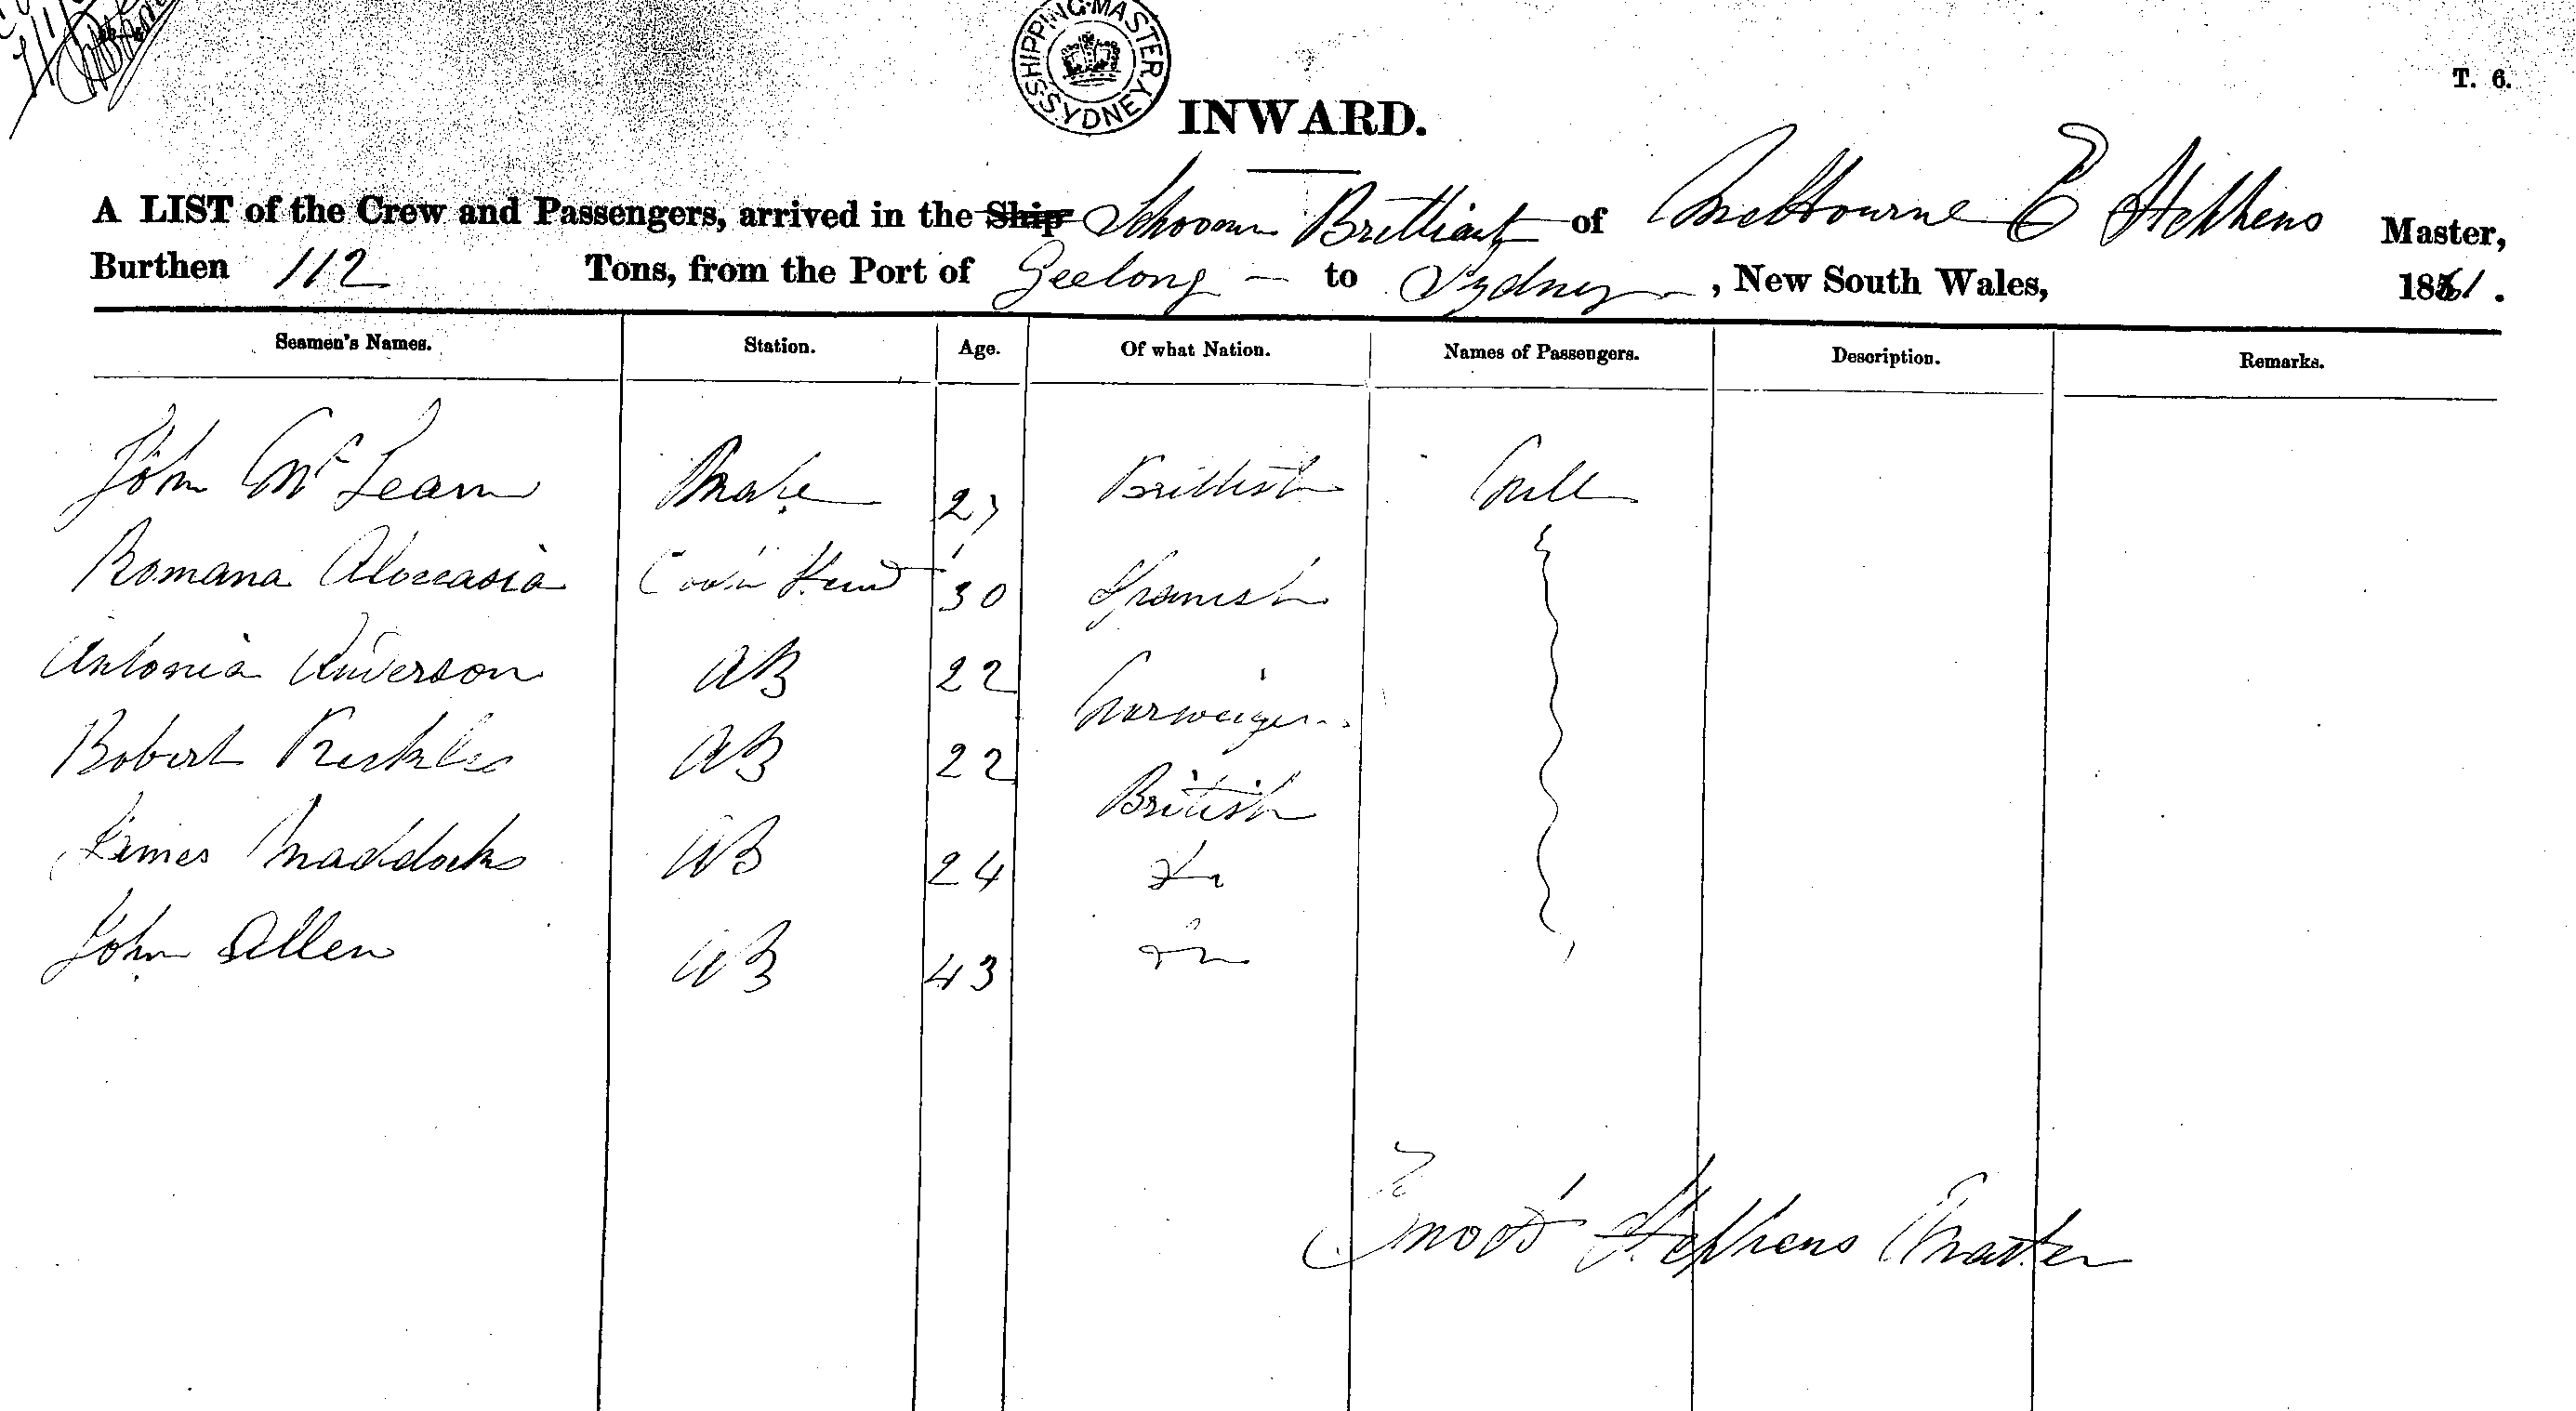 SHIPPING MASTER SYDNEY
T. 6.
INWARD.
A LIST of the Crew and Passengers, arrived in the Ship Schooner Brilliant of Melbourne E Stephens Master,
Burthen 112 Tons, from the Port of Geelong — to Sydney, New South Wales, 1861.
Seamen's Names. Station. Age. Of what Nation. Names of Passengers. Description. Remarks.
John McLean Mate 27 Brittish Null
Romana 30 Spanish
Antonia Anderson AB 22
Robert AB 22 British
James Maddocks AB 24 Do
John Allen AB 43 Do
Stephens Master